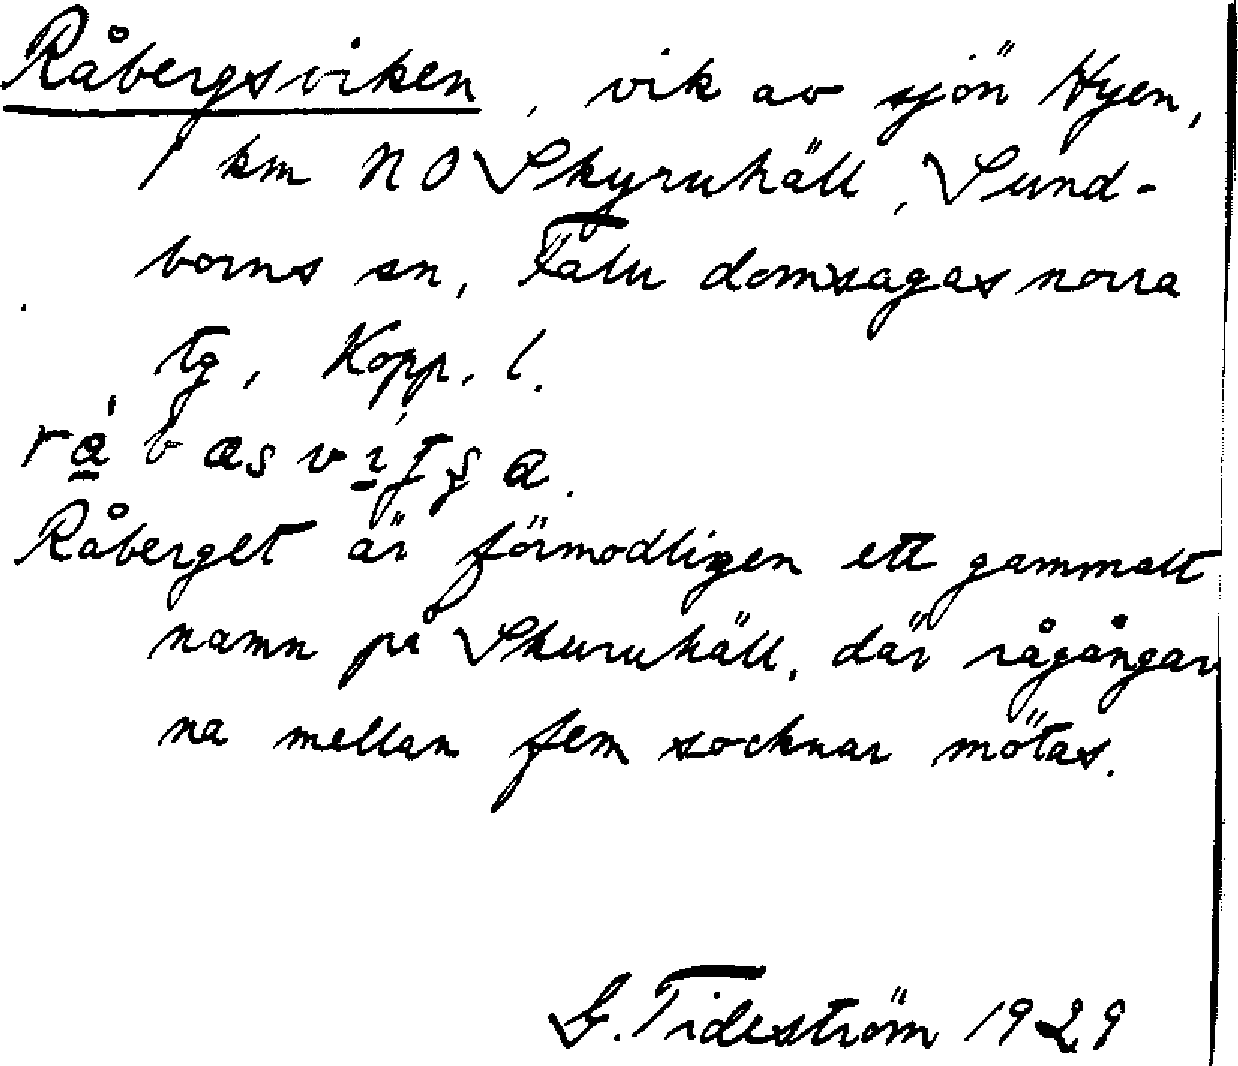 Råbergsviken, vik av sjön Hyen,
1 km NO Skyruhäll, Sund-
borns sn, Falu domsagas norra
tg, Kopp. l.
Råberget är förmodligen ett gammalt
namn på Skuruhäll, där rågångar
na mellan fem socknar mötas.
G. Tideström 1929